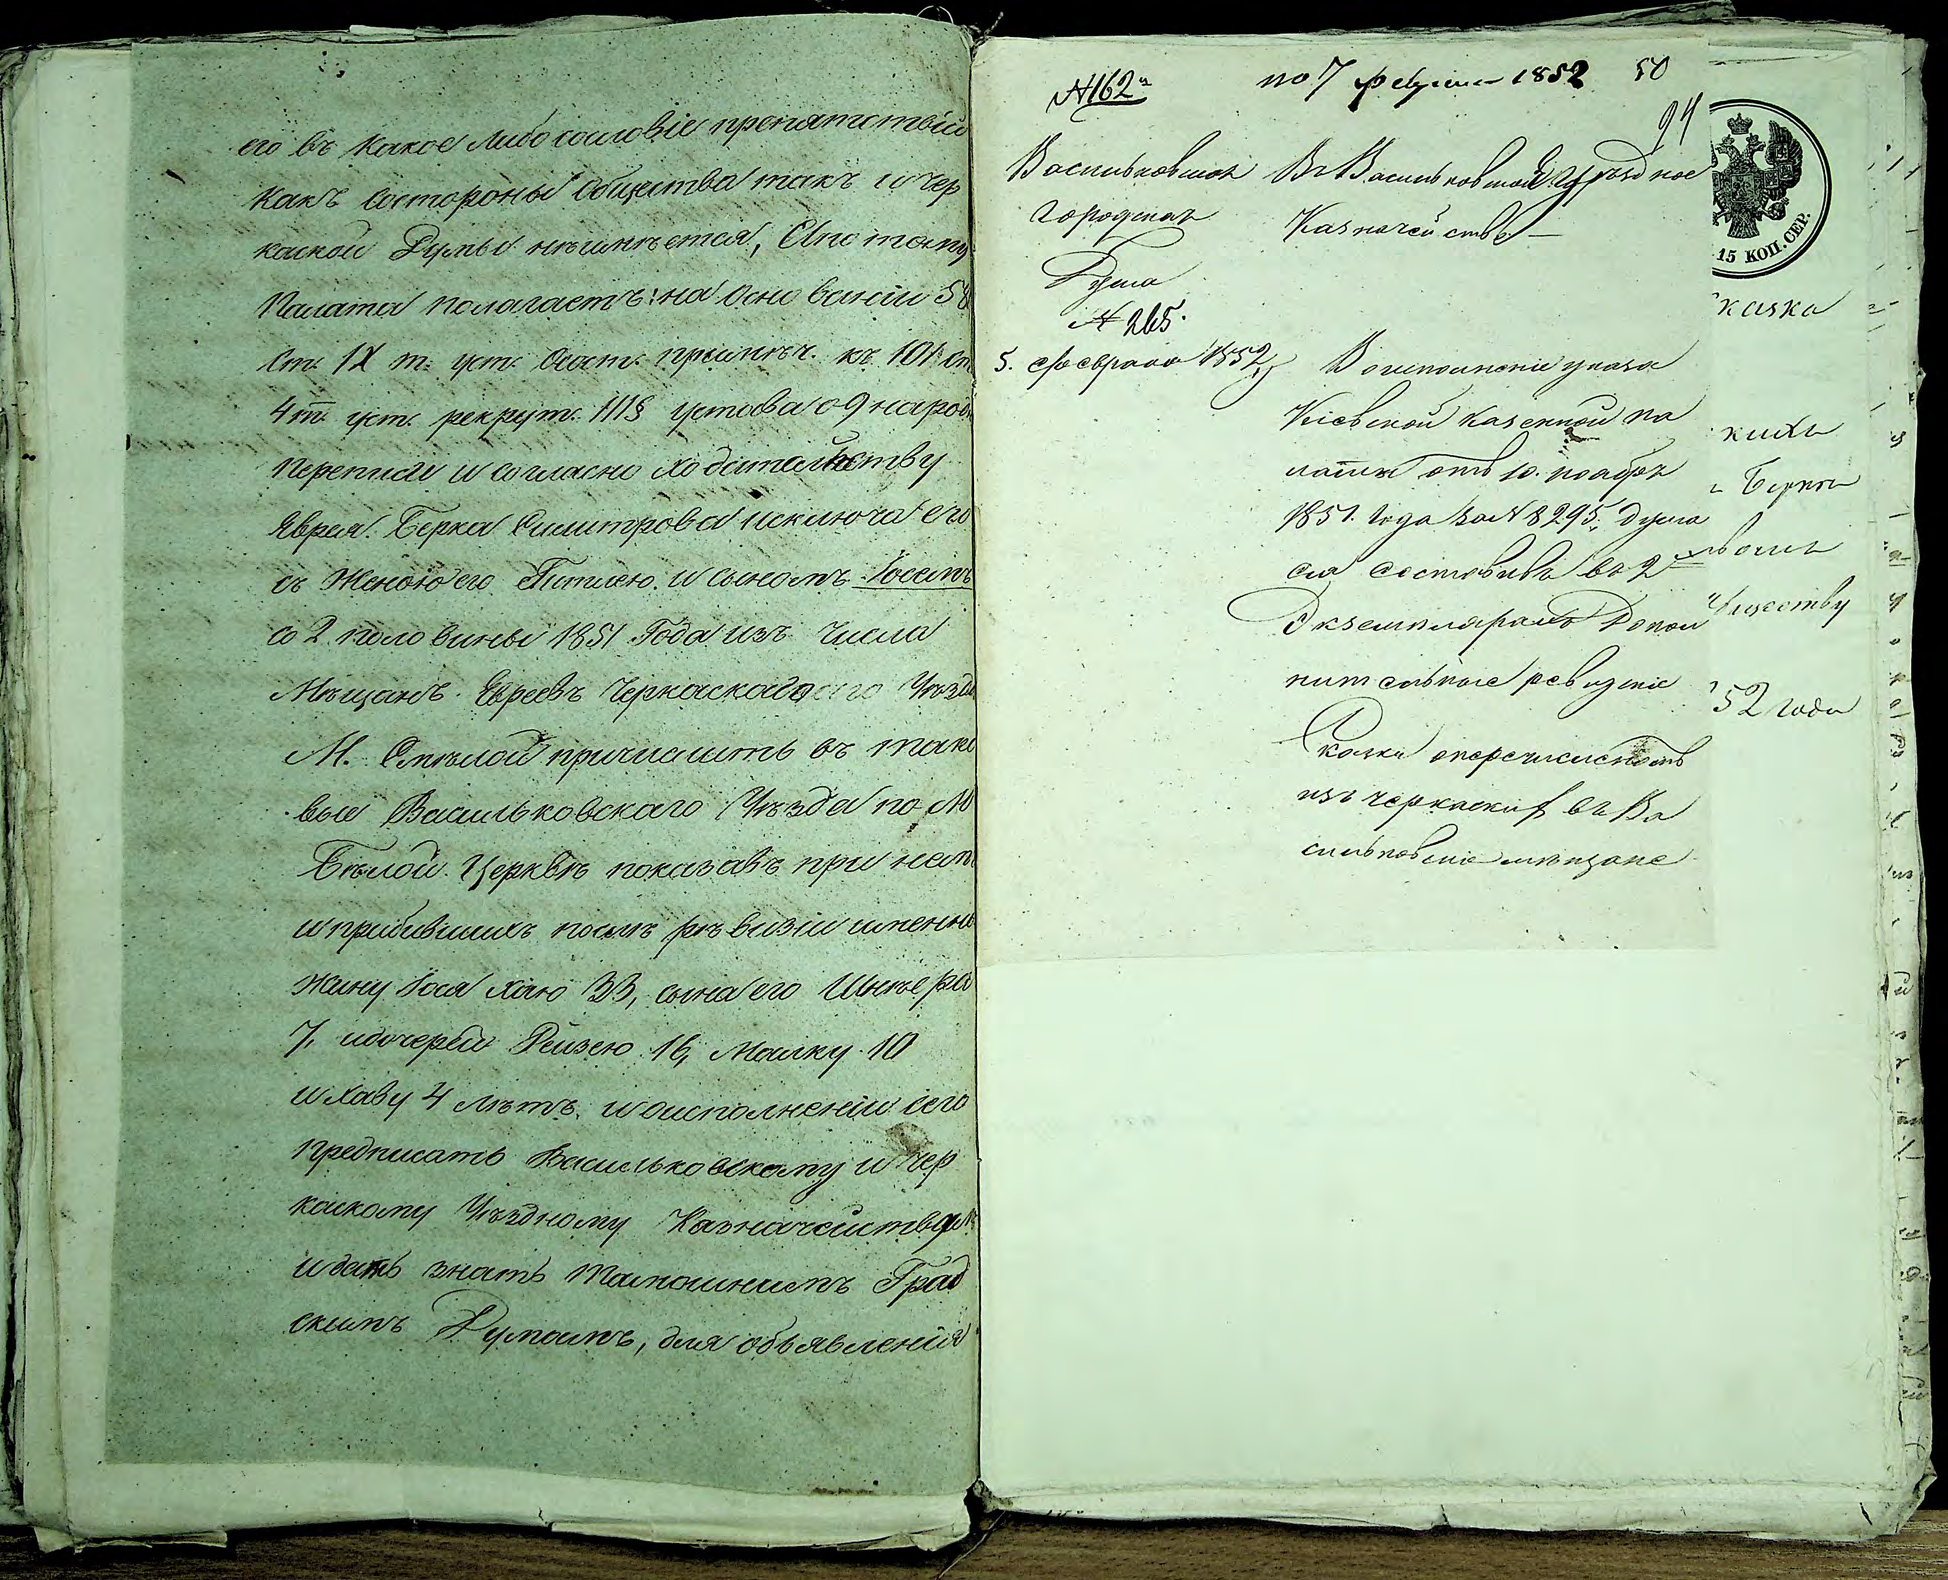 его въ какое либо сословіе препятствій
какъ состороны Общества такъ и Чер
каской Думы неимѣется, Апотому
Палата полагаетъ: на основаніи 58
Ст. IX т. уст. Сост. примѣч. къ 101 ст
4 т. уст. рекрут. 111§ устава о 9 народ
переписи и согласно ходатайству
Еврея Берка Симитрова исключа его
съ Женою его Титлею и сыномъ Іосемъ
со 2 половины 1851 Года изъ числа
Мѣщанъ Евреевъ Черкаскаго Уѣзда
М. Смѣлой причислить въ тако
вые Васильковскаго Уѣзда по М
Бѣлой Церквѣ показавъ при немъ
и прибывшихъ послѣ ревизіи именно
жину Іося Хаю 33, сына его Шмеро
7, идочерей Рейзею 16, Малку 10
и Хаву 4 лѣтъ. и оисполненіи сего
предписать Васильковскому и Чер
каскому Уѣздному Казначействамъ
и дать знать тамошнимъ Град
скимъ Думамъ, для объявленія
№ 162
по 7 февраля 1852
50
94
Васильковская
Городская
Дума
№ 265.
5. февраля 1852
Въ Васильковское Уѣздное
Казначейство
Во исполненіе указа
Кіевской Казенной па
латы отъ 10. ноября
1851. года за № 8295. дума
сія составивъ въ 2
Экземплярахъ Допол
нительные ревизкіе
Сказки оперечисленіи
изъ черкаских въ Ва
сильковскіе мѣщане
15 КОП. СЕР.
казка
кихъ
Берко
ществу
52 года